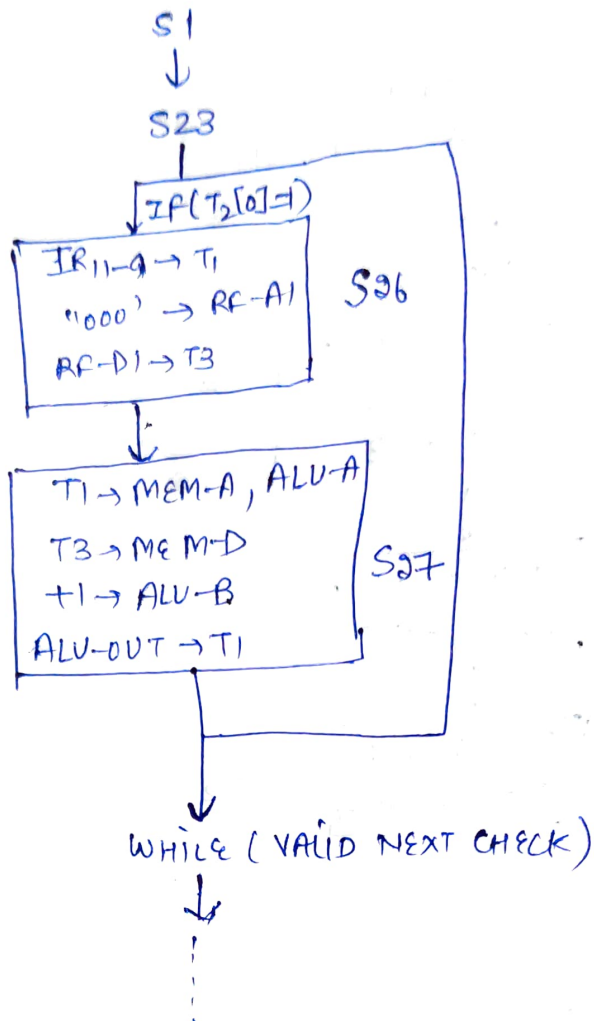 S1
S23
If(T2[0]=1)
IR11-9→T1
"000' → RF-A1
RF-D1→T3
S26
T1→MEM-A, ALU-A
T3→MEM-D
+1→ALU-B
ALU-OUT→T1
S27
WHILE (VALID NEXT CHECK)